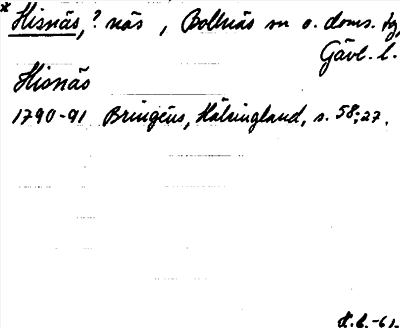 * Hisnäs, ? näs, Bollnäs sn o. doms. hg,
Gävl. l.
Hisnäs
1790-91 Bringéus, Hälsingland, s. 58; 27.
-61.